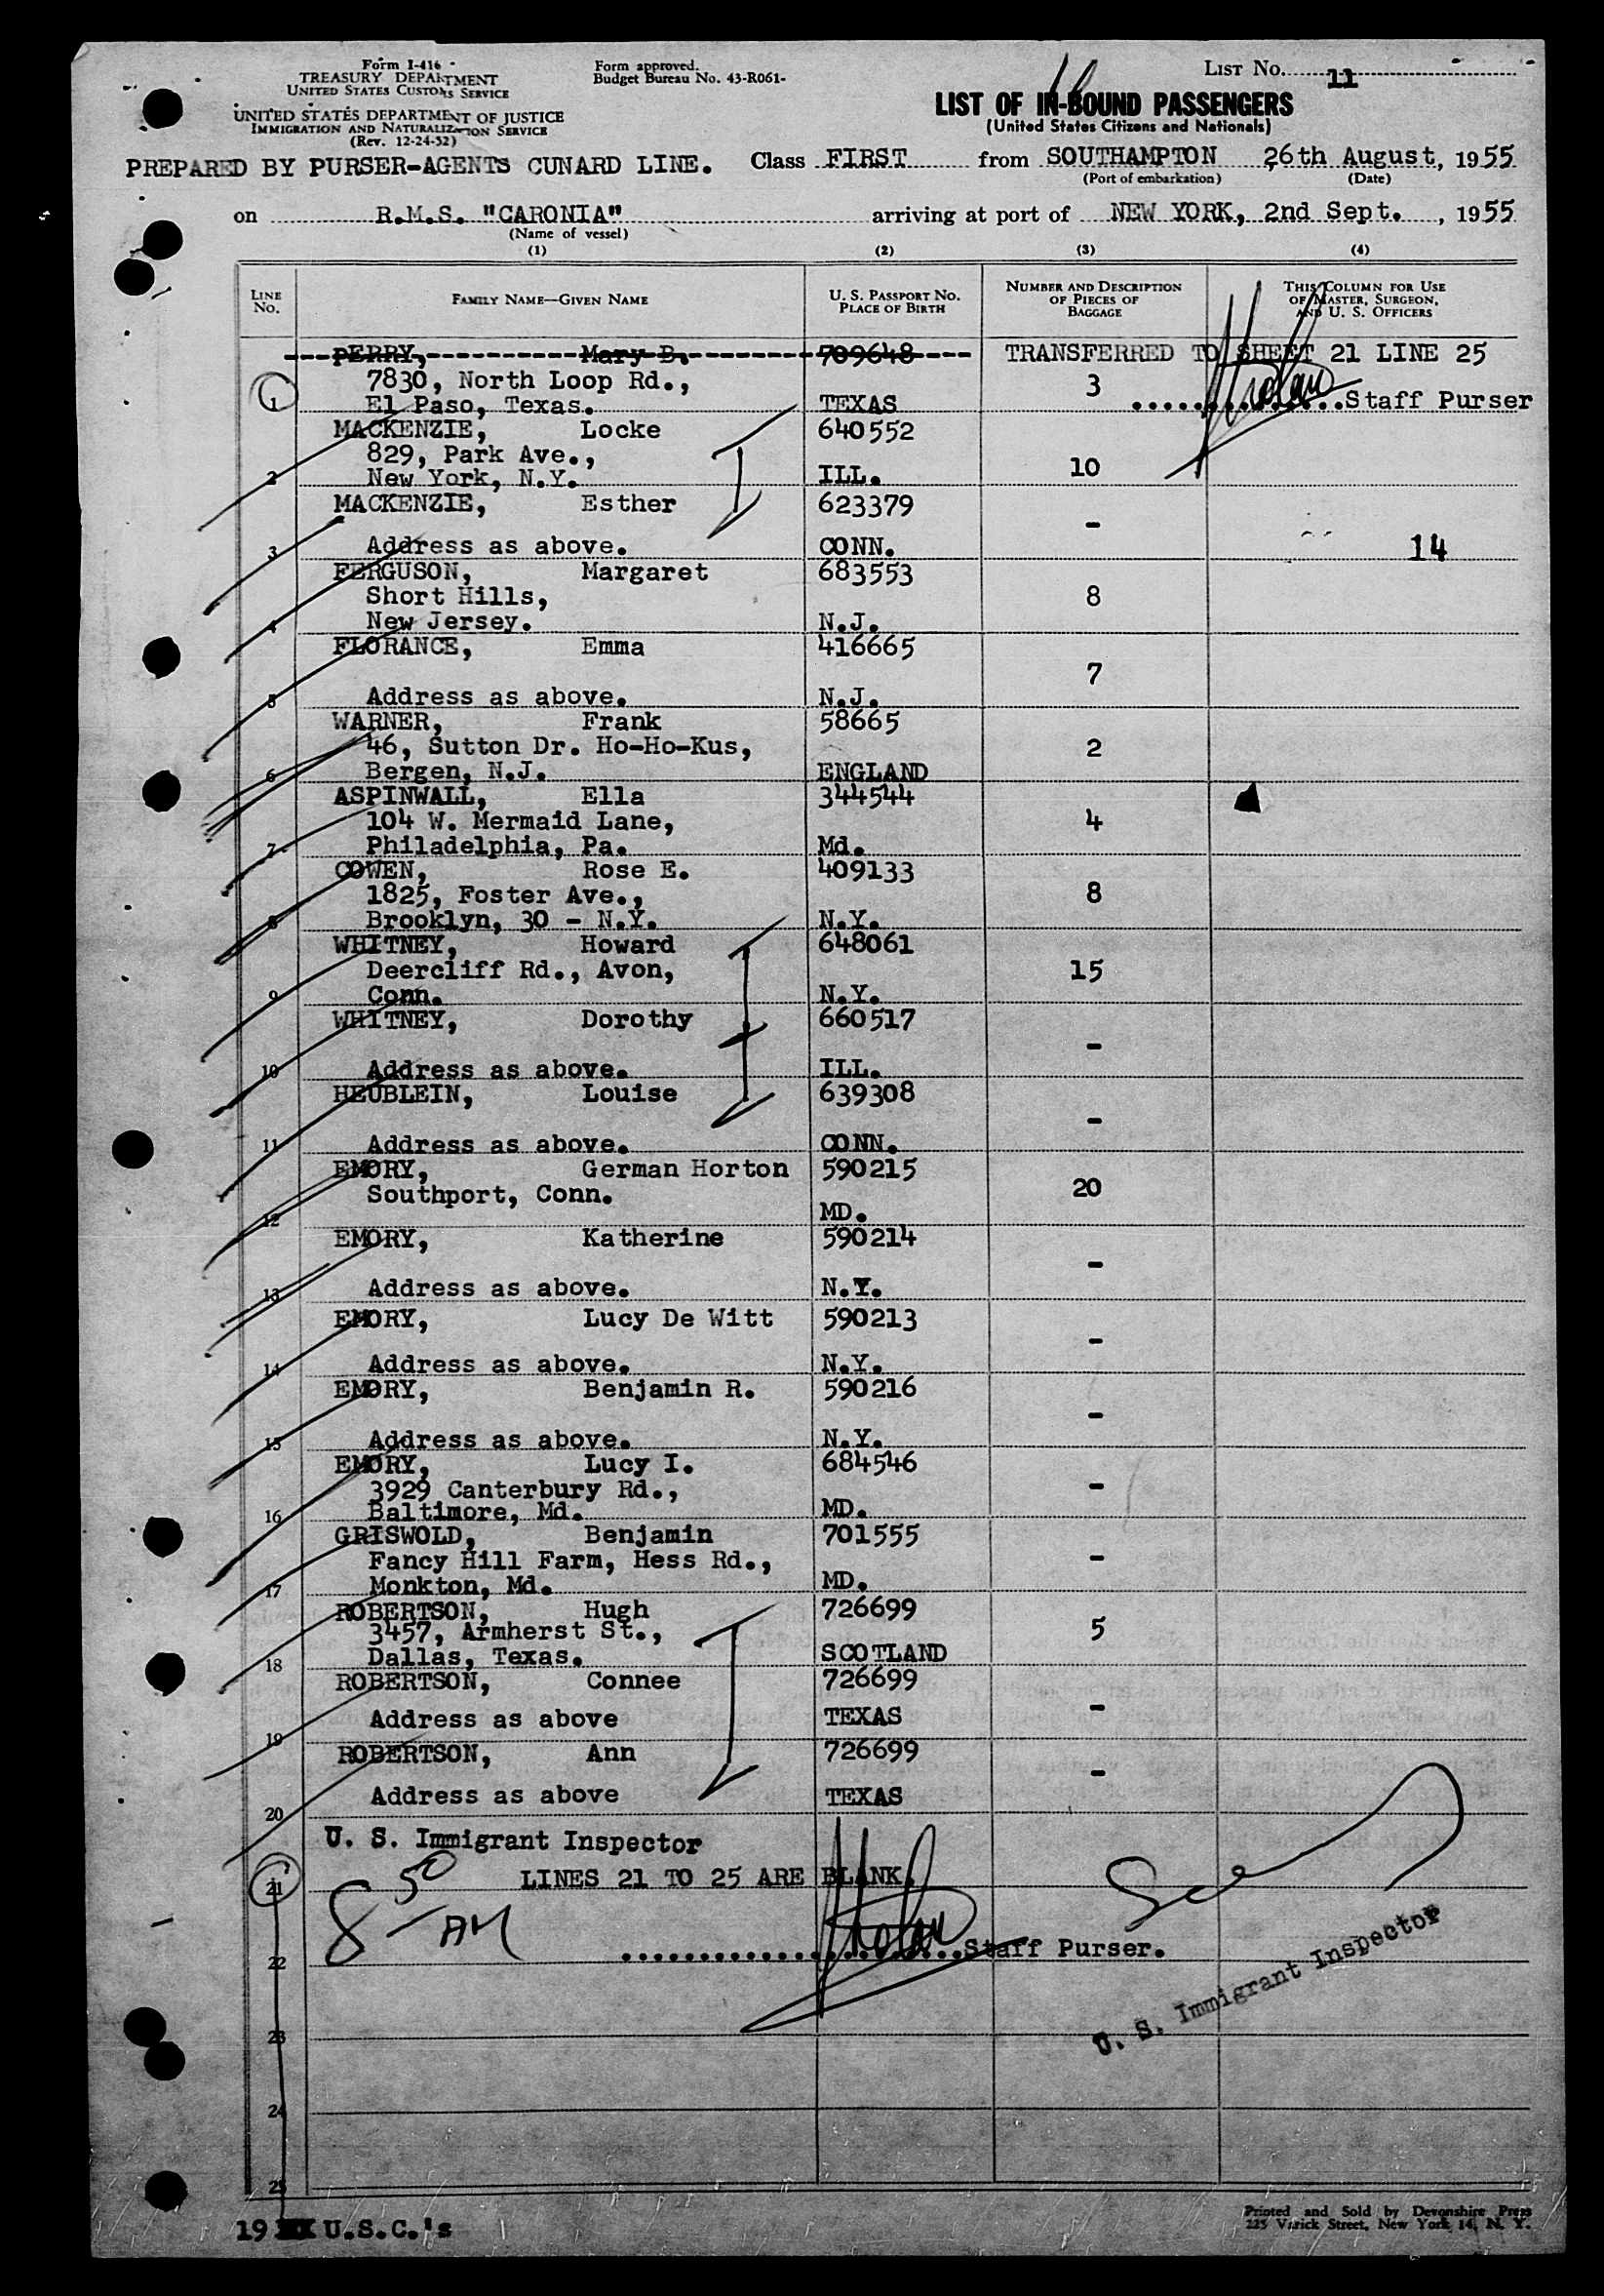 Form I-416
TREASURY DEPARTMENT
UNITED STATES CUSTOMS SERVICE
UNITED STATES DEPARTMENT OF JUSTICE
IMMIGRATION AND NATURALIZATION SERVICE
(Rev. 12-24-52)
Form approved.
Budget Bureau No. 43-R061-
LIST No. 11
LIST OF IN-BOUND PASSENGERS
(United States Citizens and Nationals)
PREPARED BY PURSER-AGENTS CUNARD LINE. Class FIRST from SOUTHAMPTON 26th August, 1955
(Port of embarkation) (Date)
on R.M.S. "CARONIA" arriving at port of NEW YORK, 2nd Sept. , 1955
(Name of vessel)
(1) (2) (3) (4)
LINE No. FAMILY NAME—GIVEN NAME U. S. PASSPORT NO. PLACE OF BIRTH NUMBER AND DESCRIPTION OF PIECES OF BAGGAGE THIS COLUMN FOR USE OF MASTER, SURGEON, AND U. S. OFFICERS
PERRY, Mary B. 709648 TRANSFERRED TO SHEET 21 LINE 25
7830, North Loop Rd., 3
1 El Paso, Texas. TEXAS Staff Purser
MACKENZIE, Locke 640552
829, Park Ave., 10
2 New York, N.Y. ILL.
MACKENZIE, Esther 623379
-
3 Address as above. CONN. 14
FERGUSON, Margaret 683553
Short Hills, 8
4 New Jersey. N.J.
FLORANCE, Emma 416665
7
5 Address as above. N.J.
WARNER, Frank 58665
46, Sutton Dr. Ho-Ho-Kus, 2
6 Bergen, N.J. ENGLAND
ASPINWALL, Ella 344544
104 W. Mermaid Lane, 4
7 Philadelphia, Pa. Md.
COWEN, Rose E. 409133
1825, Foster Ave., 8
8 Brooklyn, 30 - N.Y. N.Y.
WHITNEY, Howard 648061
Deercliff Rd., Avon, 15
9 Conn. N.Y.
WHITNEY, Dorothy 660517
-
10 Address as above. ILL.
HEUBLEIN, Louise 639308
-
11 Address as above. CONN.
EMORY, German Horton 590215
Southport, Conn. 20
12 MD.
EMORY, Katherine 590214
-
13 Address as above. N.Y.
EMORY, Lucy De Witt 590213
-
14 Address as above. N.Y.
EMORY, Benjamin R. 590216
-
15 Address as above. N.Y.
EMORY, Lucy I. 684546
3929 Canterbury Rd., -
16 Baltimore, Md. MD.
GRISWOLD, Benjamin 701555
Fancy Hill Farm, Hess Rd., -
17 Monkton, Md. MD.
ROBERTSON, Hugh 726699
3457, Armherst St., 5
18 Dallas, Texas. SCOTLAND
ROBERTSON, Connee 726699
Address as above TEXAS -
19
ROBERTSON, Ann 726699
-
Address as above TEXAS
20
U. S. Immigrant Inspector
21 LINES 21 TO 25 ARE BLANK.
8 50 AM
Staff Purser.
22
U. S. Immigrant Inspector
23
24
25
19 U.S.C.'s
Printed and Sold by Devonshire Press
225 Varick Street, New York 14, N. Y.